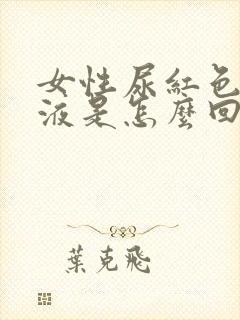 女性尿紅色
液是怎麼回
葉克飛